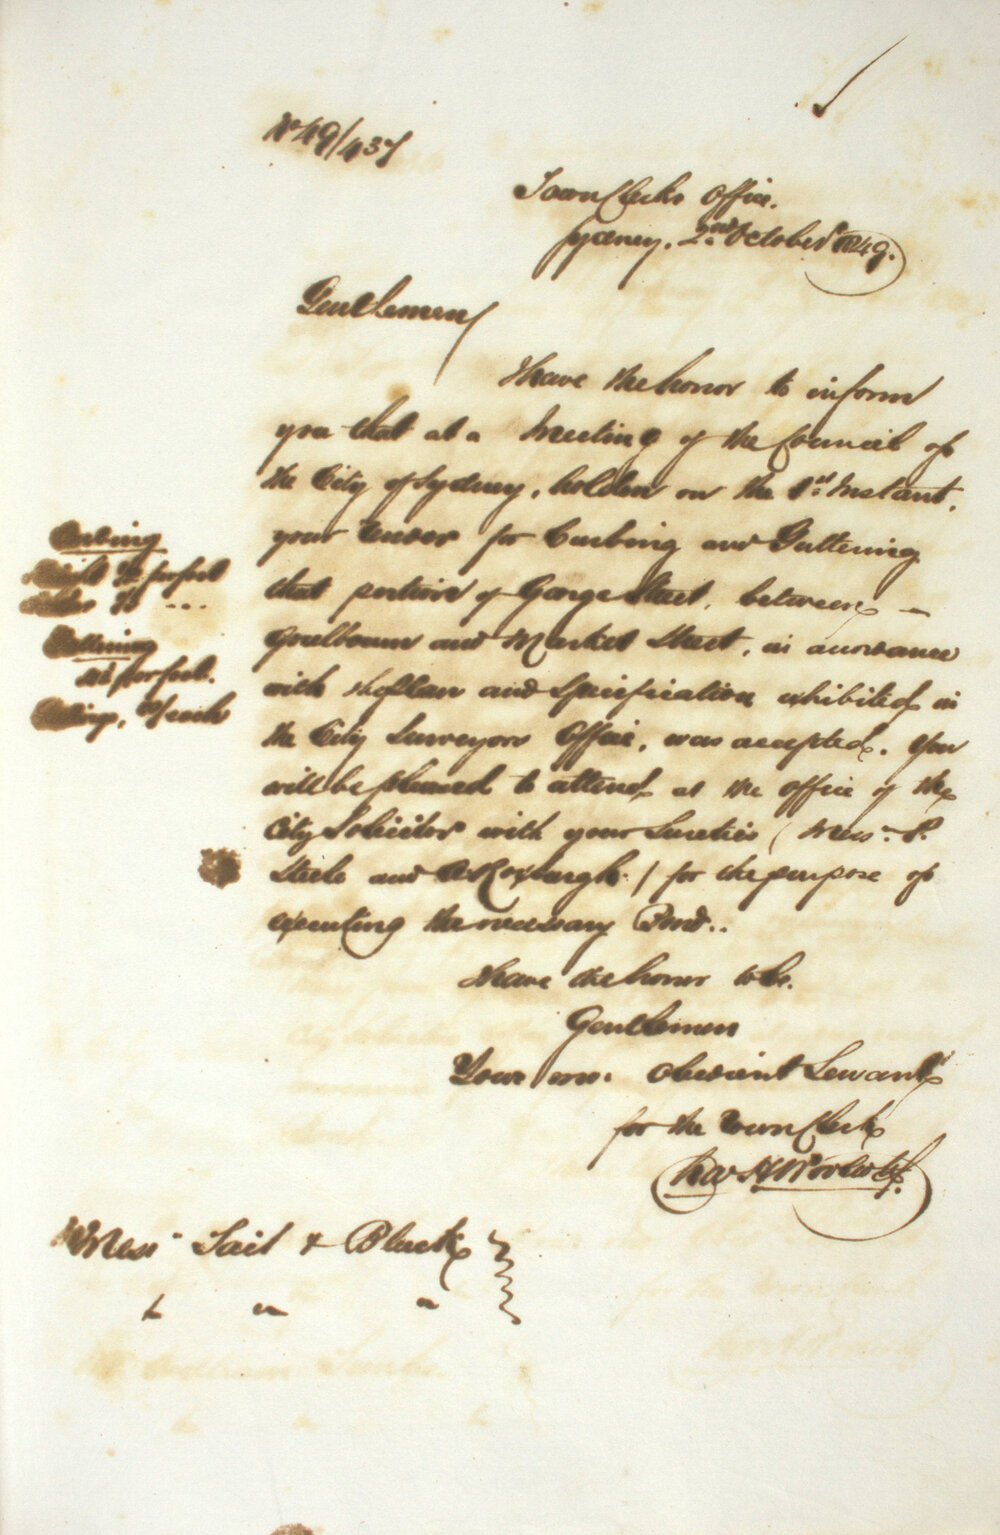 No 49/437
Town Clerks Office.
Sydney, 2nd October 1849.
Gentlemen
I have the honor to inform
you that at a Meeting of the Council of
the City of Sydney, holden on the 1st Instant,
your Tender for Curbing and Guttering
that portion of George Street, between
Goulbourn and Market Street, in accordance
with the plan and Specification exhibited in
the City Surveyors Office, was accepted. You
will be pleased to attend at the office of the
City Solicitor with your Sureties (Messrs. P.
Steele and Roxburgh) for the purpose of
executing the necessary Bond..
I have the honor to be.
Gentlemen
Your mo. Obedient Servant
for the Town Clerk
Curbing
per foot
Guttering
per foot.
each
Messrs Tait & Black